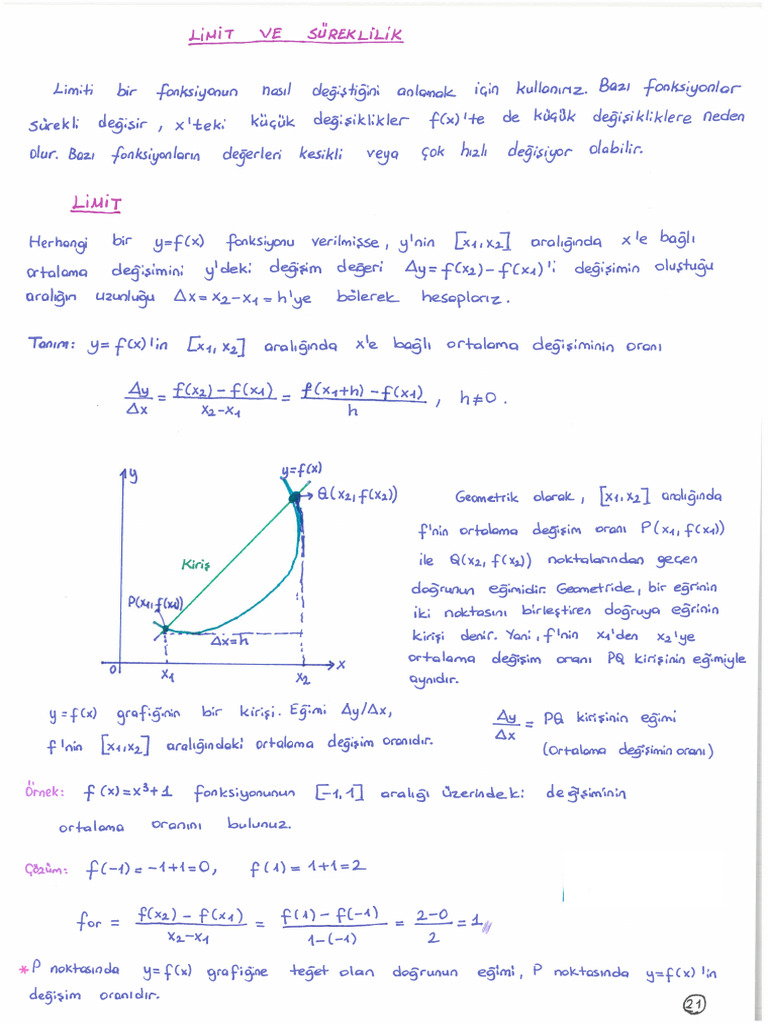 LİMİT VE SÜREKLİLİK
Limiti bir fonksiyonun nasıl değiştiğini anlamak için kullanırız. Bazı fonksiyonlar
sürekli değişir, x'teki küçük değişiklikler f(x)'te de küçük değişikliklere neden
olur. Bazı fonksiyonların değerleri kesikli veya çok hızlı değişiyor olabilir.
LİMİT
Herhangi bir y=f(x) fonksiyonu verilmişse, y'nin [x₁,x₂] aralığında x'e bağlı
ortalama değişimini y'deki değişim değeri Δy=f(x₂)-f(x₁)'i değişimin oluştuğu
aralığın uzunluğu Δx=x₂-x₁=h'ye bölerek hesaplarız.
Tanım: y=f(x)'in [x₁,x₂] aralığında x'e bağlı ortalama değişiminin oranı
Δy/Δx = f(x₂)-f(x₁)/x₂-x₁ = f(x₁+h)-f(x₁)/h, h≠0.
y
y=f(x)
Q(x₂,f(x₂))
Kiriş
P(x₁,f(x₁))
Δx=h
0
x₁
x₂
x
Geometrik olarak, [x₁,x₂] aralığında
f'nin ortalama değişim oranı P(x₁,f(x₁))
ile Q(x₂,f(x₂)) noktalarından geçen
doğrunun eğimidir. Geometride, bir eğrinin
iki noktasını birleştiren doğruya eğrinin
kirişi denir. Yani, f'nin x₁'den x₂'ye
ortalama değişim oranı PQ kirişinin eğimiyle
aynıdır.
y=f(x) grafiğinin bir kirişi. Eğimi Δy/Δx,
f'nin [x₁,x₂] aralığındaki ortalama değişim oranıdır.
Δy/Δx = PQ kirişinin eğimi
(Ortalama değişimin oranı)
Örnek: f(x)=x³+1 fonksiyonunun [-1,1] aralığı üzerindeki değişiminin
ortalama oranını bulunuz.
Çözüm: f(-1)=-1+1=0, f(1)=1+1=2
for = f(x₂)-f(x₁)/x₂-x₁ = f(1)-f(-1)/1-(-1) = 2-0/2 = 1
* P noktasında y=f(x) grafiğine teğet olan doğrunun eğimi, P noktasında y=f(x)'in
değişim oranıdır.
21